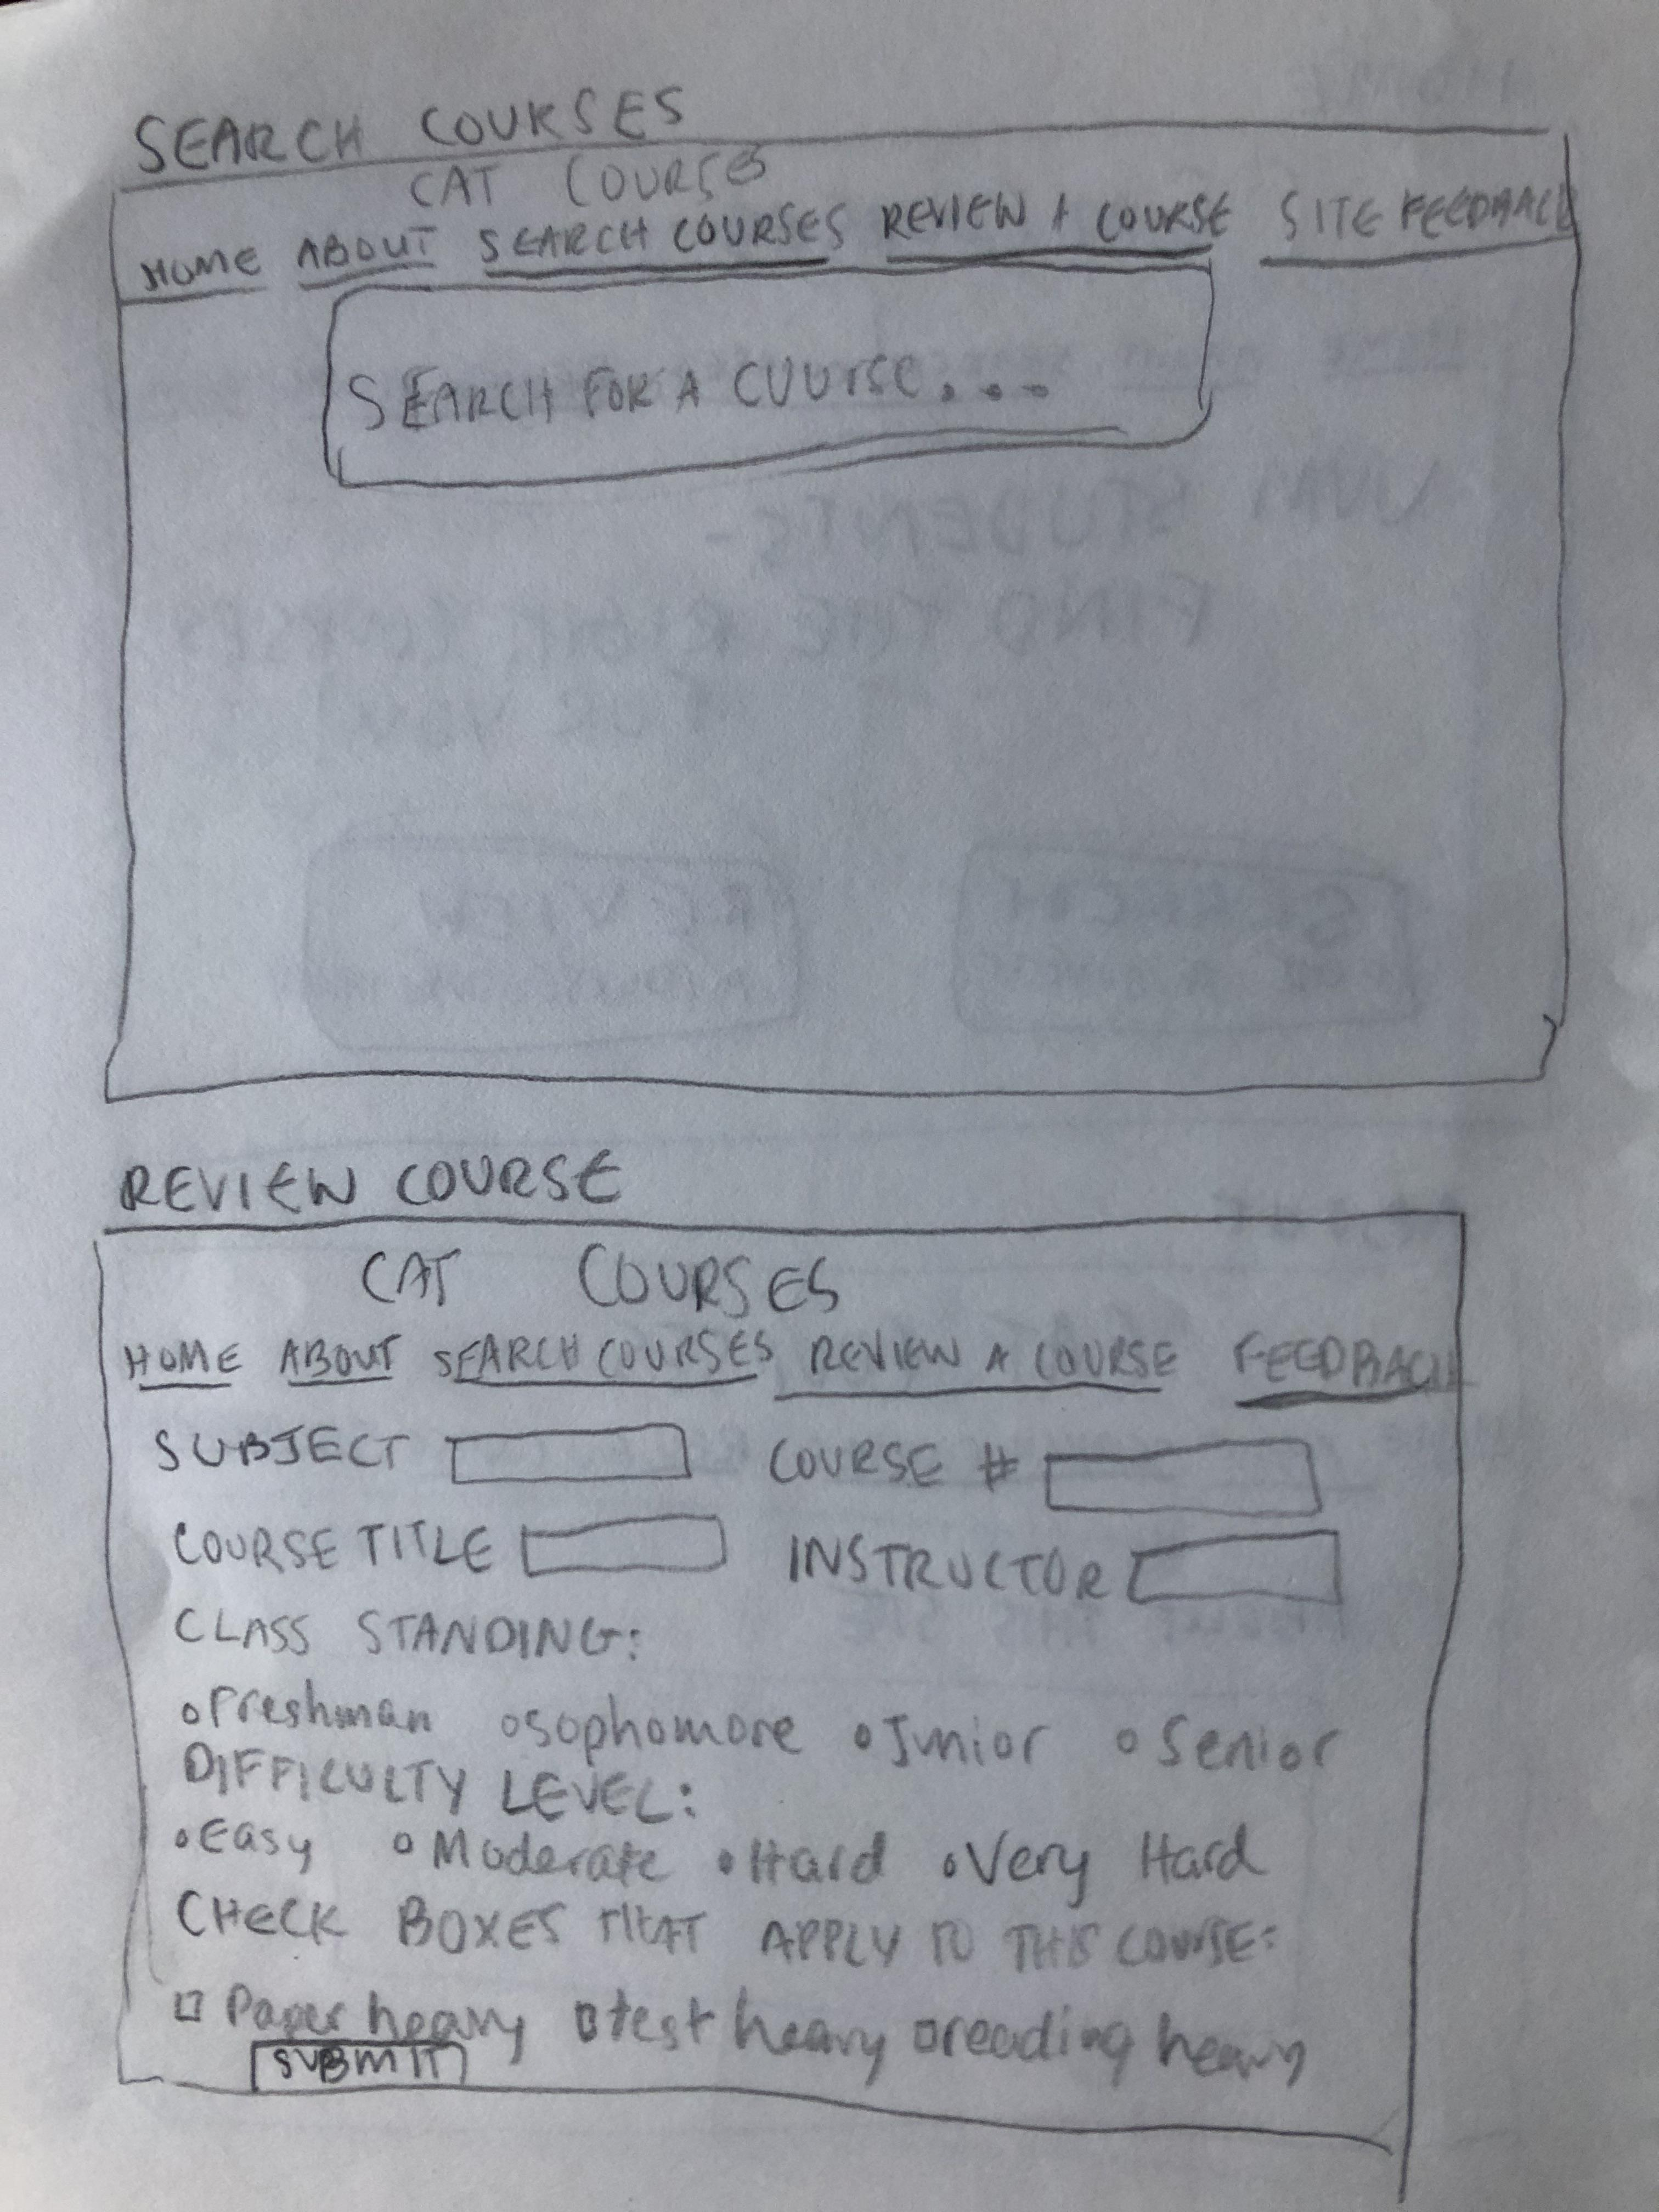 SEARCH COURSES
CAT COURSES
HOME ABOUT SEARCH COURSES REVIEW A COURSE SITE FEEDBACK
SEARCH FOR A COURSE...
REVIEW COURSE
CAT COURSES
HOME ABOUT SEARCH COURSES REVIEW A COURSE FEEDBACK
SUBJECT COURSE #
COURSE TITLE INSTRUCTOR
CLASS STANDING:
Freshman Sophomore Junior Senior
DIFFICULTY LEVEL:
Easy Moderate Hard Very Hard
CHECK BOXES THAT APPLY TO THIS COURSE:
Paper heavy test heavy reading heavy
SUBMIT